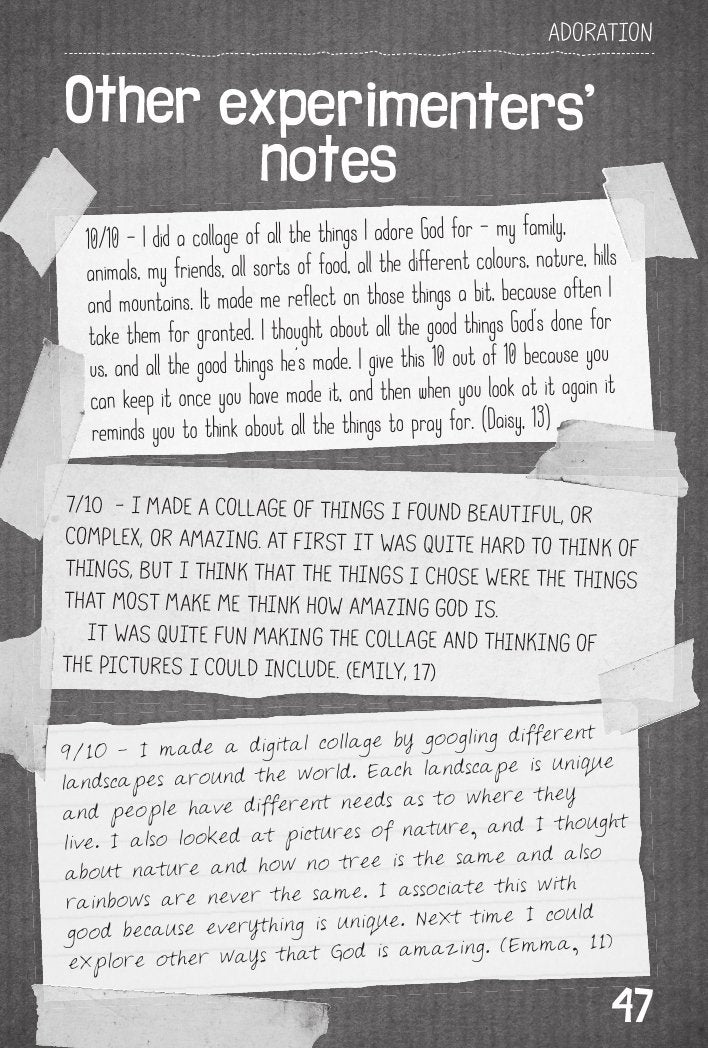 ADORATION
Other experimenters'
notes
10/10 – I did a collage of all the things I adore God for – my family,
animals, my friends, all sorts of food, all the different colours, nature, hills
and mountains. It made me reflect on those things a bit, because often I
take them for granted. I thought about all the good things God's done for
us, and all the good things he's made. I give this 10 out of 10 because you
can keep it once you have made it, and then when you look at it again it
reminds you to think about all the things to pray for. (Daisy, 13)
7/10 – I MADE A COLLAGE OF THINGS I FOUND BEAUTIFUL, OR
COMPLEX, OR AMAZING. AT FIRST IT WAS QUITE HARD TO THINK OF
THINGS, BUT I THINK THAT THE THINGS I CHOSE WERE THE THINGS
THAT MOST MAKE ME THINK HOW AMAZING GOD IS.
IT WAS QUITE FUN MAKING THE COLLAGE AND THINKING OF
THE PICTURES I COULD INCLUDE. (EMILY, 17)
9/10 – I made a digital collage by googling different
landscapes around the world. Each landscape is unique
and people have different needs as to where they
live. I also looked at pictures of nature, and I thought
about nature and how no tree is the same and also
rainbows are never the same. I associate this with
good because everything is unique. Next time I could
explore other ways that God is amazing. (Emma, 11)
47